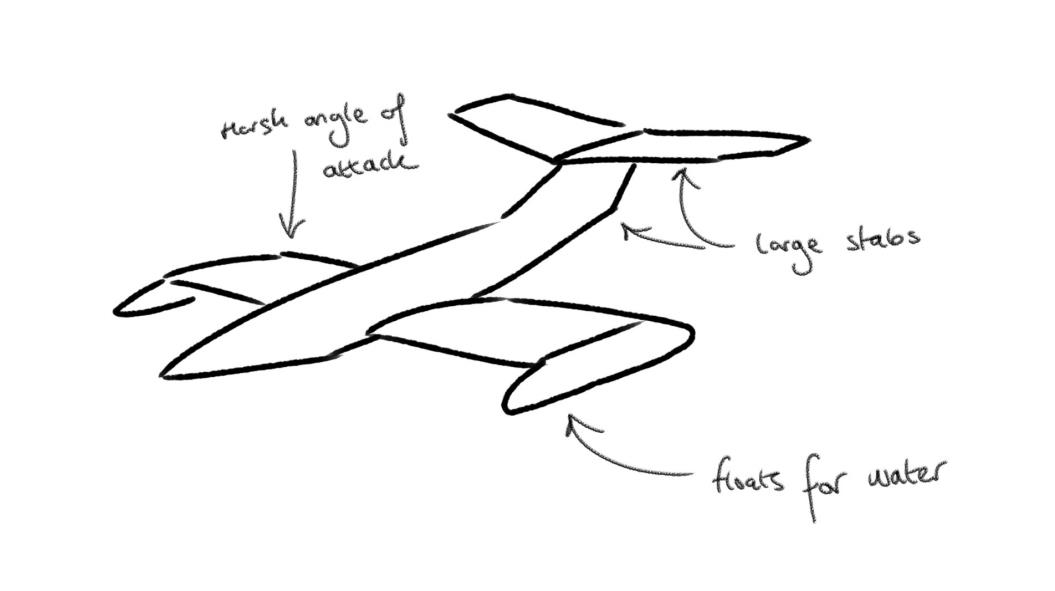 Harsh angle of
attack
large stabs
floats for water